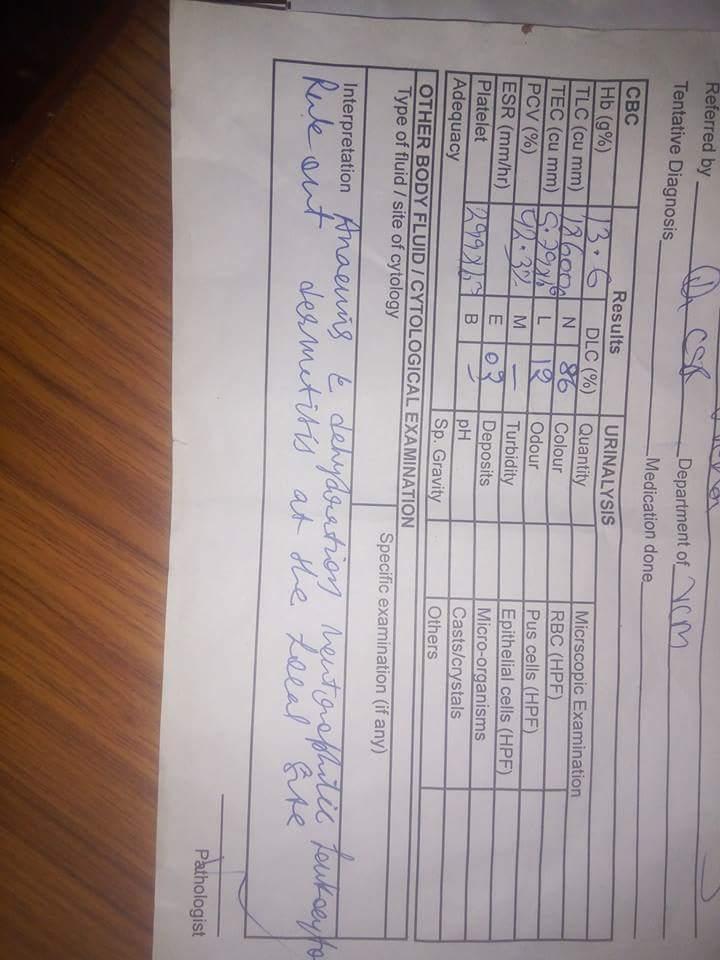 Referred by Dr CSR Department of VCM
Tentative Diagnosis Medication done
CBC Results URINALYSIS
Hb (g%) 13.6 DLC (%) Quantity Micrscopic Examination
TLC (cu mm) N 86 Colour RBC (HPF)
TEC (cu mm) L 12 Odour Pus cells (HPF)
PCV (%) M – Turbidity Epithelial cells (HPF)
ESR (mm/hr) E 02 Deposits Micro-organisms
Platelet B – pH Casts/crystals
Adequacy Sp. Gravity Others
OTHER BODY FLUID / CYTOLOGICAL EXAMINATION
Type of fluid / site of cytology Specific examination (if any)
Interpretation Anaemis dehydration neutrophilic leukocyto
Rule out dermetisis at the local site
Pathologist